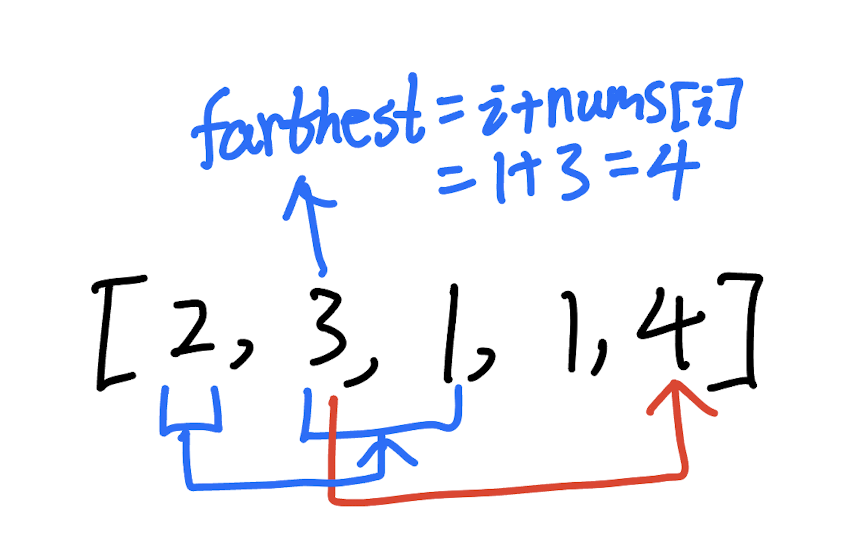 farthest = i+nums[i]
= 1+3=4
[2, 3, 1, 1, 4]